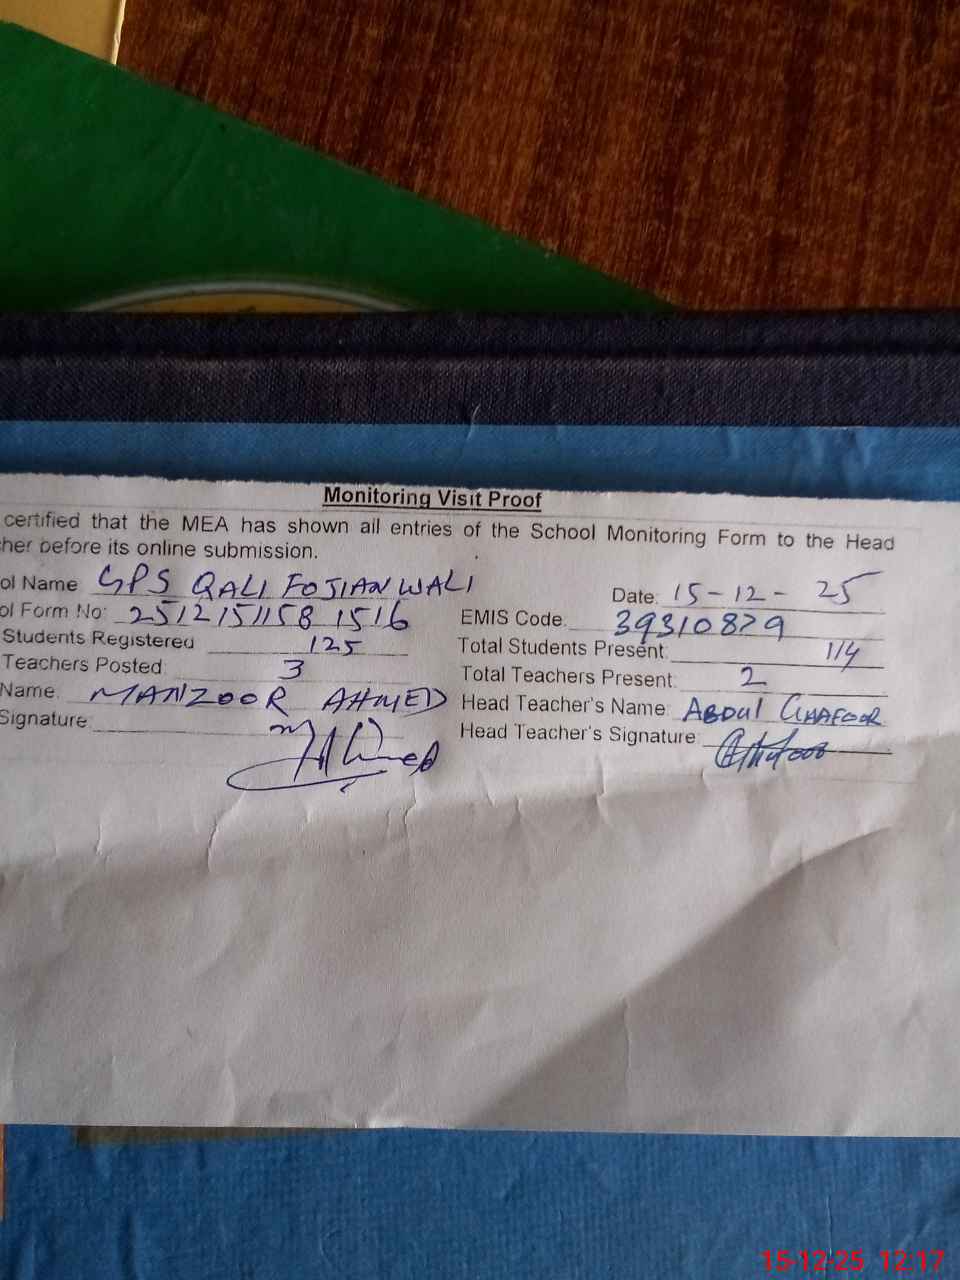 Monitoring Visit Proof
certified that the MEA has shown all entries of the School Monitoring Form to the Head
her before its online submission.
ol Name GPS QALI FOJIANWALI Date: 15-12-25
ol Form No: 25121511581516 EMIS Code: 39310829
Students Registered 125 Total Students Present: 114
Teachers Posted 3 Total Teachers Present: 2
Name: MANZOOR AHMED Head Teacher's Name: ABDUL GHAFOOR
Signature: Head Teacher's Signature:
15-12-25 12:17